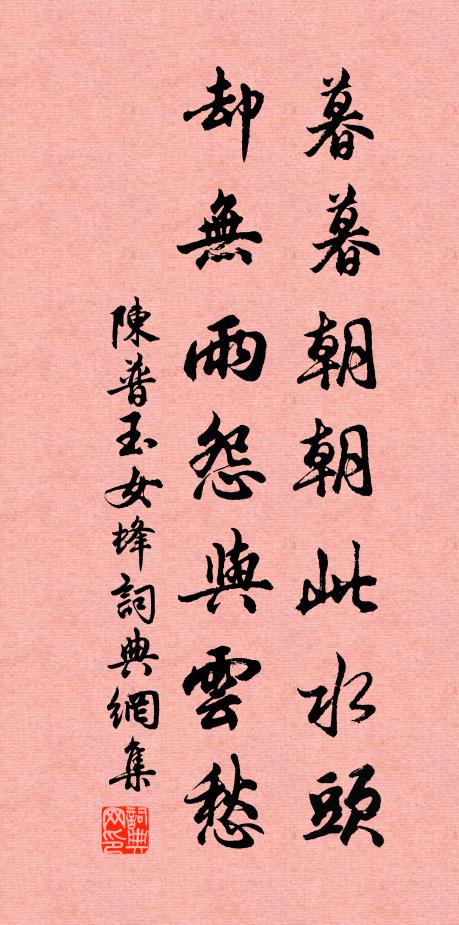 暮暮朝朝此水頭
却無雨怨與雲愁
陳普玉女峰詞典網集
詞典网印